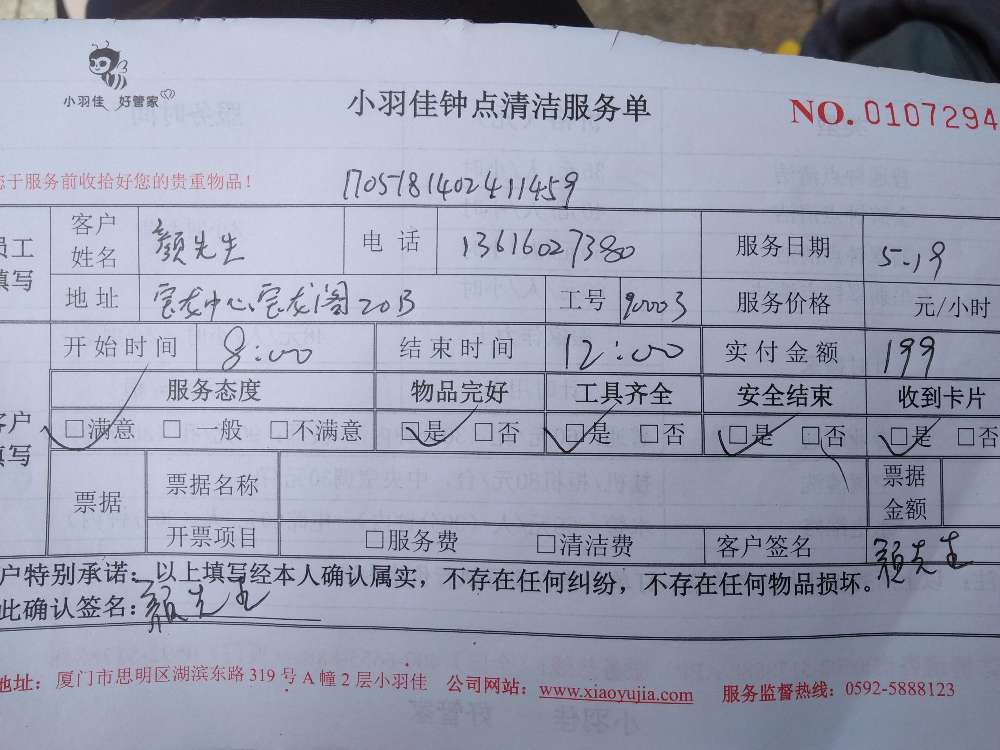 小羽佳 好管家
小羽佳钟点清洁服务单
NO. 0107294
于服务前收拾好您的贵重物品！
170518140241459
员工填写 客户姓名 颜先生 电话 13616027380 服务日期 5.19
地址 宝龙中心宝龙阁20B 工号 90003 服务价格 元/小时
开始时间 8:00 结束时间 12:00 实付金额 199
服务态度 物品完好 工具齐全 安全结束 收到卡片
客户填写 □满意 □一般 □不满意 □是 □否 □是 □否 □是 □否 □是 □否
票据 票据名称 票据金额
开票项目 □服务费 □清洁费 客户签名 颜先生
户特别承诺：以上填写经本人确认属实，不存在任何纠纷，不存在任何物品损坏。
此确认签名：颜先生
地址：厦门市思明区湖滨东路319号A幢2层小羽佳 公司网站：www.xiaoyujia.com 服务监督热线：0592-5888123